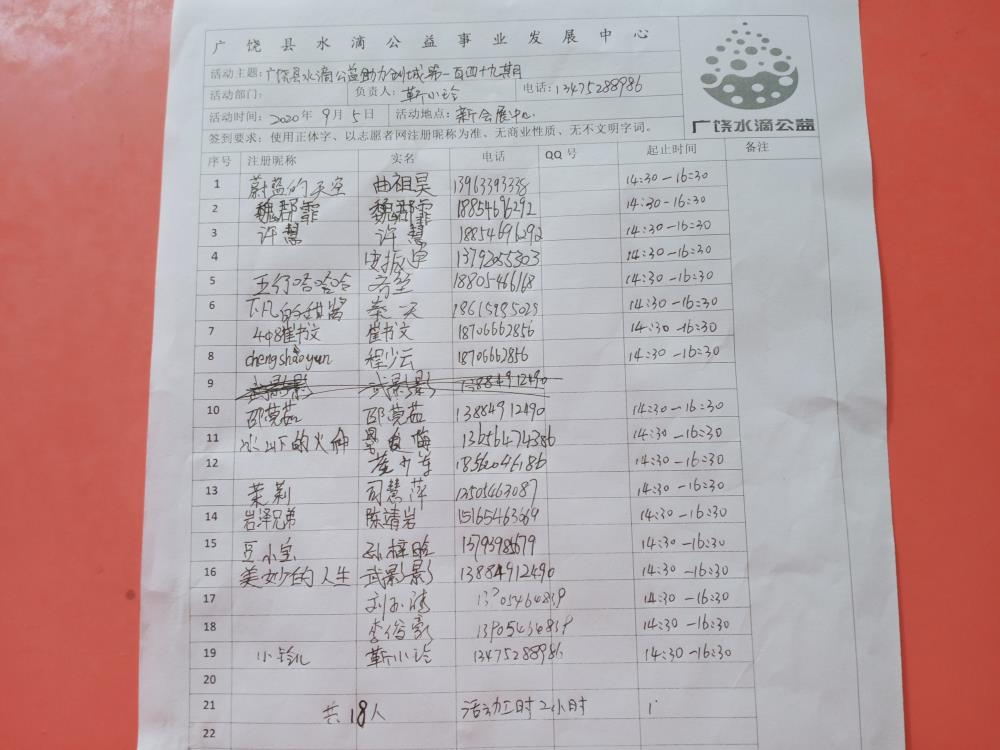 广饶县水滴公益事业发展中心
活动主题:广饶县水滴公益助力创城第一百四十九期
活动部门: 负责人:靳小玲 电话:13475288986
活动时间:2020年9月5日 活动地点:新会展中心
签到要求:使用正体字、以志愿者网注册昵称为准、无商业性质、无不文明字词。
广饶水滴公益
序号 注册昵称 实名 电话 QQ号 起止时间 备注
1 蔚蓝的天空 曲祖昊 13963393338 14:30-16:30
2 魏郡霏 魏郡霏 18854696292 14:30-16:30
3 许慧 许慧 18854696292 14:30-16:30
4 13792055303 14:30-16:30
5 五行哈哈哈 18805466168 14:30-16:30
6 下凡的甜酱 秦一天 14:30-16:30
7 408崔书文 崔书文 18706662856 14:30-16:30
8 chengshaoyun 程少云 18706662856 14:30-16:30
9 武影影 武影影 13884912490
10 邵莞茹 邵莞茹 13884912490 14:30-16:30
11 冰山下的火种 13656474386 14:30-16:30
12 18562046186 14:30-16:30
13 茉莉 司慧萍 13505463087 14:30-16:30
14 岩泽兄弟 陈靖岩 15165463669 14:30-16:30
15 豆小宝 孙梓晗 14:30-16:30
16 美妙的人生 武影影 13884912490 14:30-16:30
17 14:30-16:30
18 李俊豪 14:30-16:30
19 靳小玲 13475288986 14:30-16:30
20
21 共18人 活动工时2小时
22